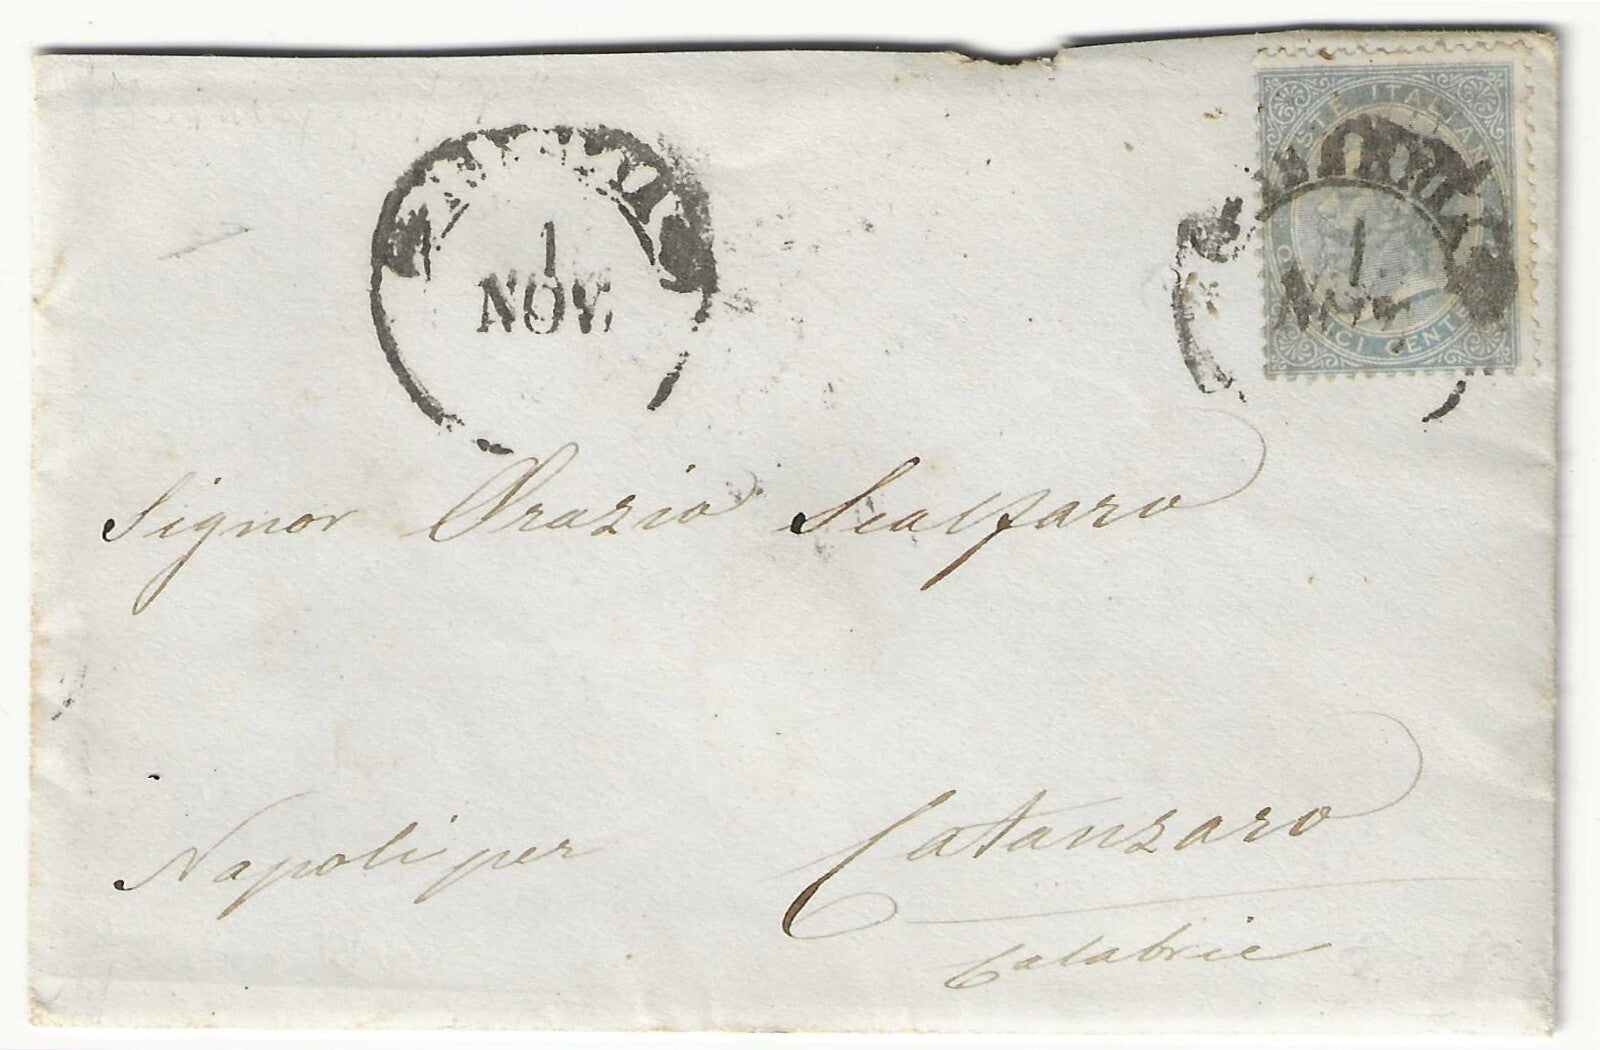 POSTE ITALIANE
1
NOV.
1
Nov.
CENTESIMI
Signor Orazio Scalfaro
Napoli per Catanzaro
Calabrie